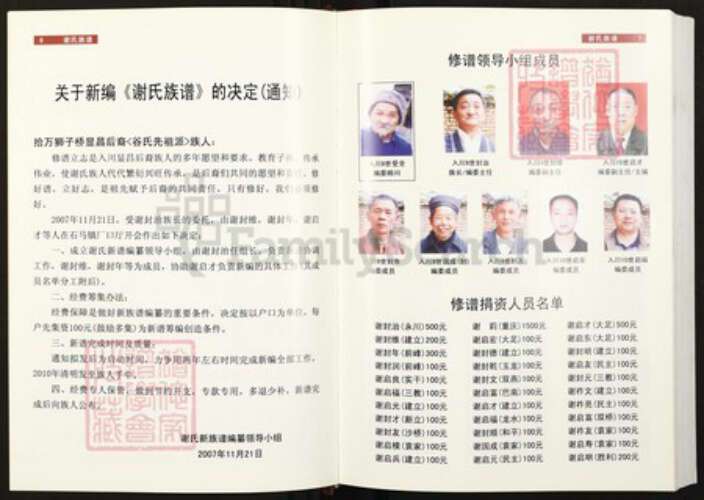 6 谢氏族谱
关于新编《谢氏族谱》的决定(通知)
拾万狮子桥显昌后裔<谷氏先祖派>族人：
修谱立志是入川显昌后裔族人的多年愿望和要求。教育子孙、传承
伟业，使谢氏族人代代繁衍兴旺传承，是后裔们共同的愿望和责任。修
好谱，立好志，是祖先赋予后裔的共同责任，只有修好，我们必须修
好。
2007年11月21日，受谢封治族长的委托，由谢封维、谢封年、谢启
才等人在石马镇厂口厅开会作出如下决定：
一、成立谢氏新谱编纂领导小组。由谢封治任组长，负责全面协调
工作，谢封维、谢封年等为成员，协助谢启才负责新编的具体工作(其成
员名单分工附后)。
二、经费筹集办法：
经费保障是做好新族谱编纂的重要条件，决定按以户口为单位，每
户先集资100元(鼓励多集)为新谱筹编创造条件。
三、新谱完成时间及质量：
通知拟发后为启动时间，力争用两年左右时间完成新编全部工作，
2010年清明发至族人手中。
四、经费专人保管，做到节约开支，专款专用，多退少补，新谱完
成后向族人公布。
谢氏新族谱编纂领导小组
2007年11月21日
谢氏族谱 7
修谱领导小组成员
编委顾问
族长/编委主任
编委副主任
编委副主任/主编
编委成员
编委成员
编委成员
编委成员
编委成员
修谱捐资人员名单
谢封治(永川)500元 谢 莉(重庆)1500元 谢启才(大足)500元
谢封维(建立)200元 谢启宏(大足)100元 谢启东(大足)100元
谢封年(前峰)300元 谢封德(建立)100元 谢封明(建立)100元
谢封润(前峰)100元 谢封乾(玉龙)100元 谢启友(民主)100元
谢启良(实干)100元 谢封文(双燕)100元 谢封元(三教)100元
谢启福(三教)100元 谢启富(巴南)100元 谢祚文(建立)100元
谢启光(建立)100元 谢启才(建立)100元 谢祚亮(民主)100元
谢封才(新立)100元 谢启福(龙水)100元 谢启富(双桥)100元
谢封友(沙桥)100元 谢封顺(和平)100元 谢封奇(袁家)100元
谢启模(袁家)100元 谢国成(袁家)100元 谢启寿(袁家)100元
谢启兵(建立)100元 谢启元(民主)100元 谢启明(胜利)200元
FamilySearch